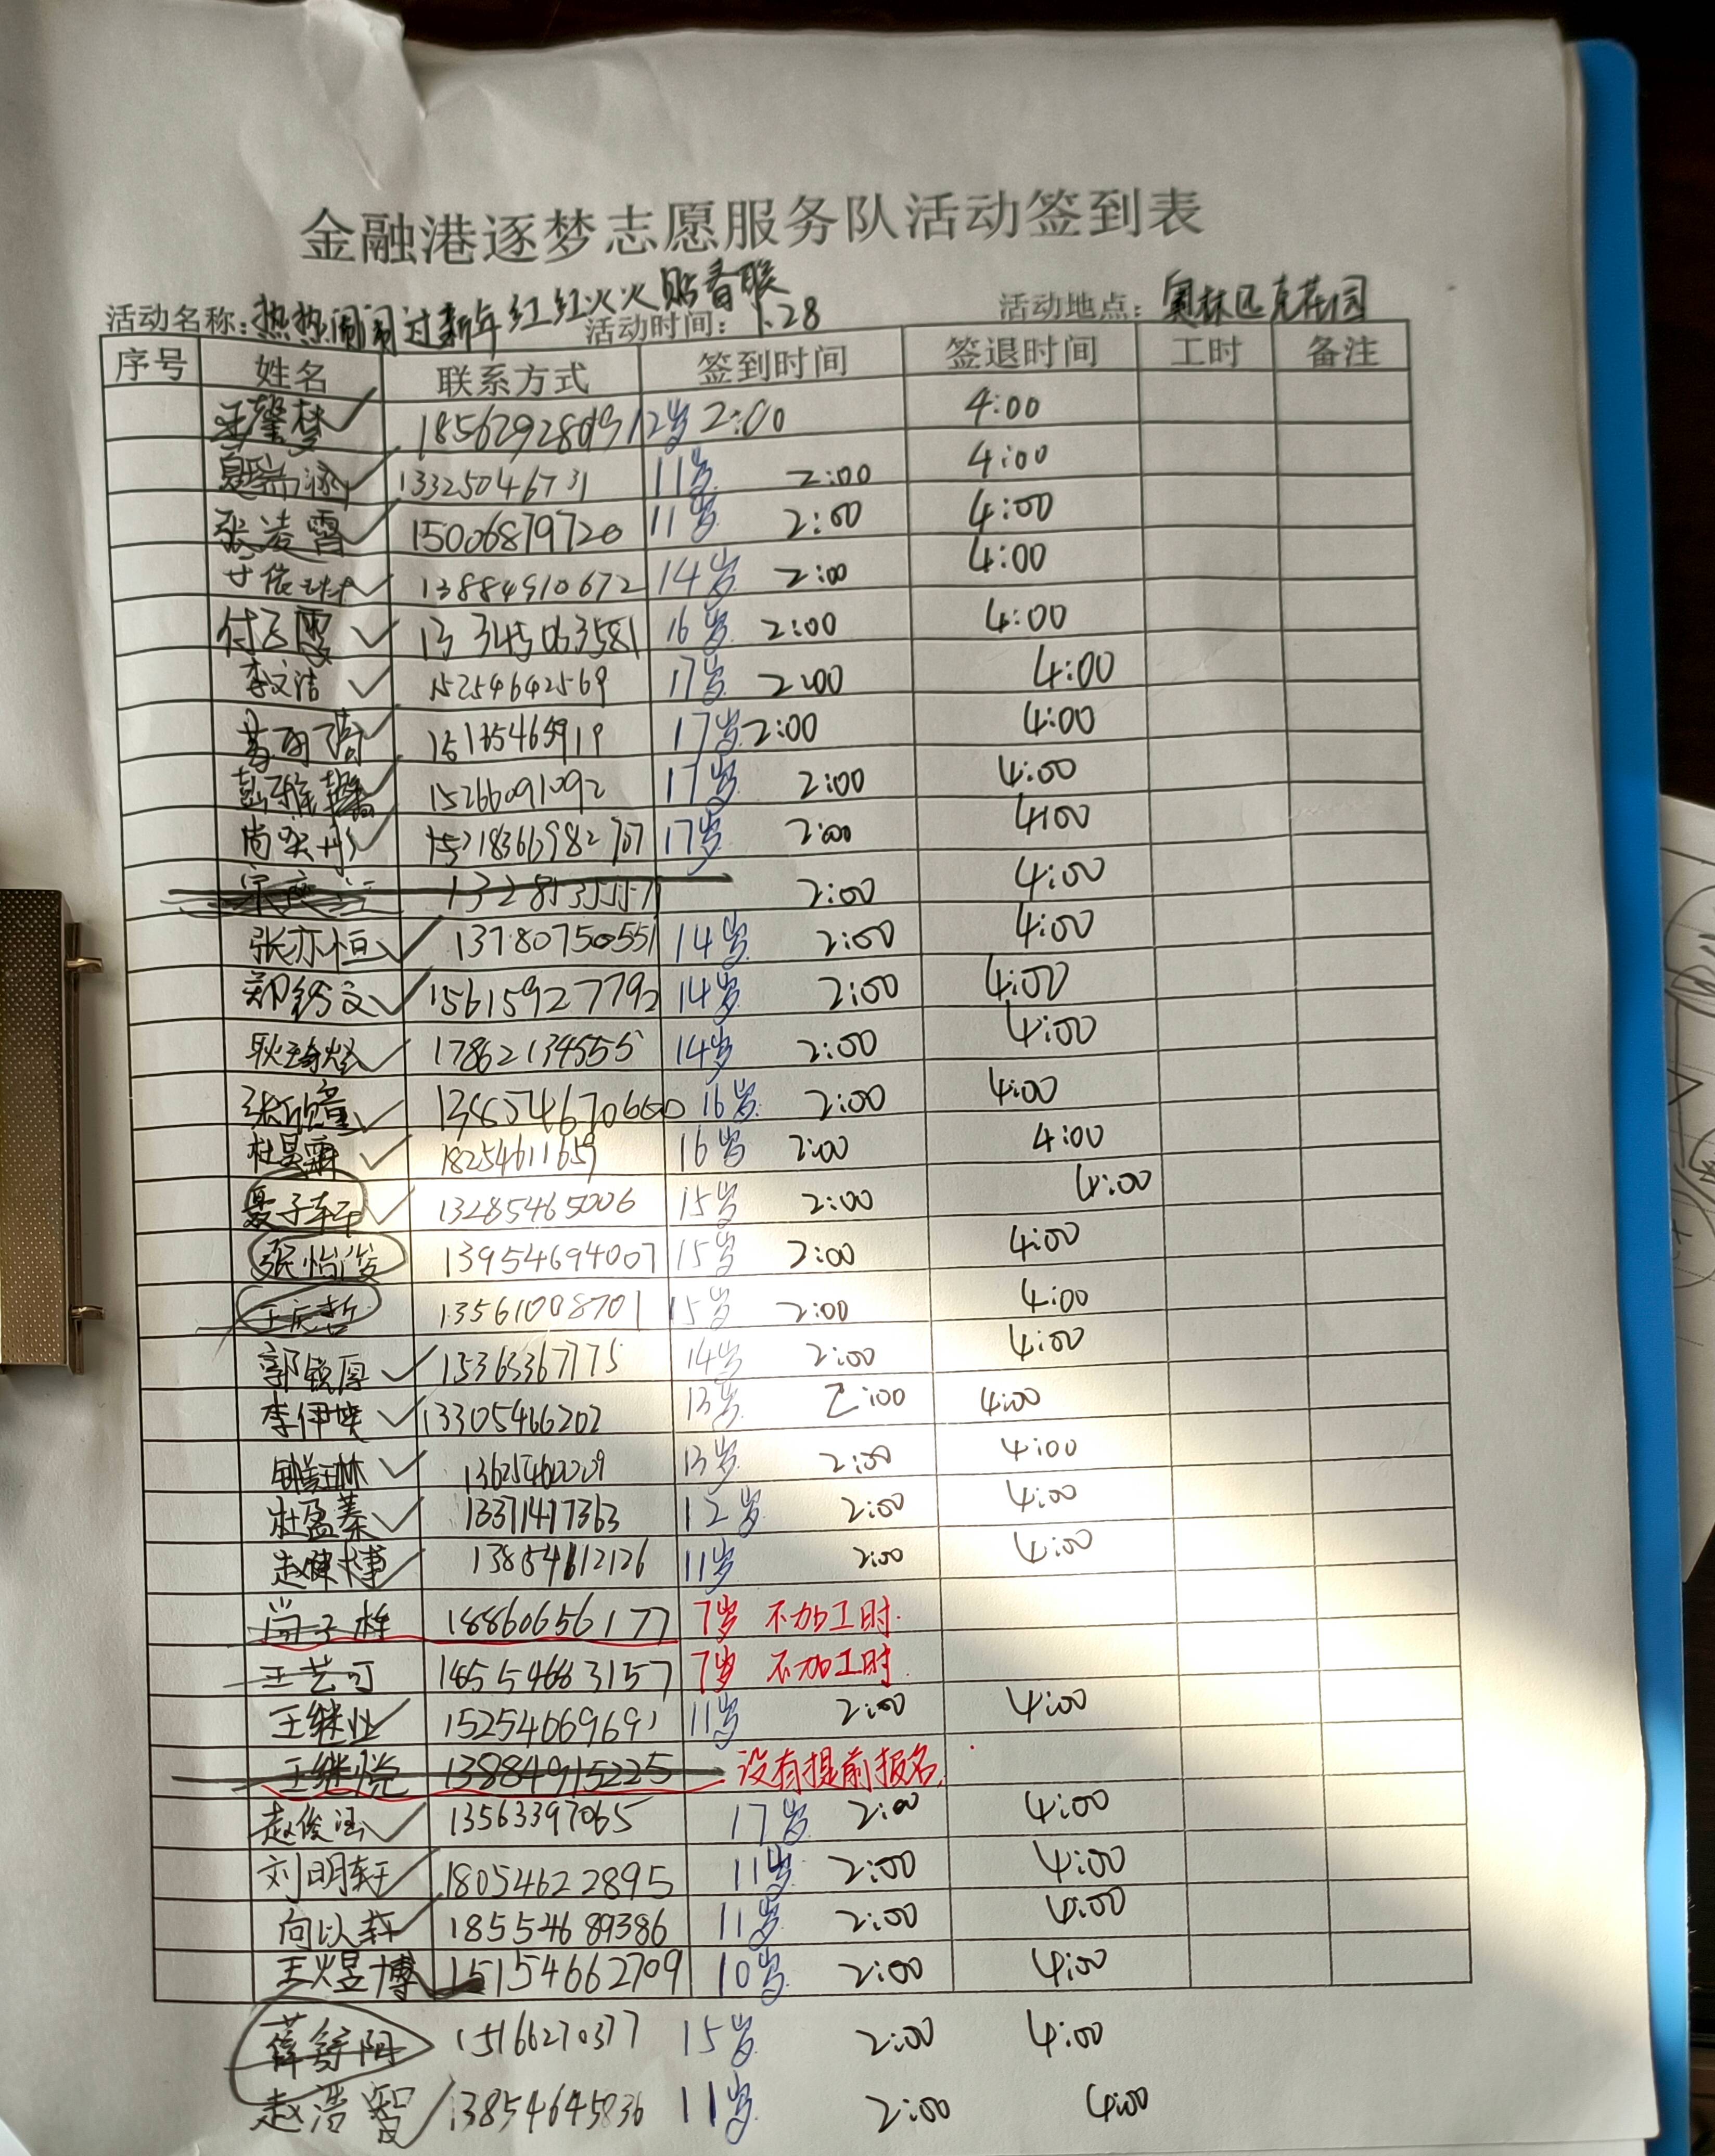 金融港逐梦志愿服务队活动签到表
活动名称：热热闹闹过新年 红红火火贴春联 活动时间：1.28 活动地点：奥林匹克花园
序号 姓名 联系方式 签到时间 签退时间 工时 备注
王馨梦 12岁 2:00 4:00
13325046731 11岁 2:00 4:00
张凌霄 15006879720 11岁 2:00 4:00
13884910672 14岁 2:00 4:00
付飞雪 13345063581 16岁 2:00 4:00
李文洁 15254642569 17岁 2:00 4:00
17岁 2:00 4:00
彭雅馨 15266091092 17岁 2:00 4:00
尚奕彤 17岁 2:00 4:00
2:00 4:00
张亦恒 13780750551 14岁 2:00 4:00
15615927792 14岁 2:00 4:00
17862134555 14岁 2:00 4:00
16岁 2:00 4:00
杜昊霖 18254611659 16岁 2:00 4:00
夏子轩 13285465006 15岁 2:00 4:00
张怡俊 13954694007 15岁 2:00 4:00
13561008701 15岁 2:00 4:00
郭锐厚 15363367775 14岁 2:00 4:00
李伊埃 13305466202 13岁 2:00 4:00
13岁 2:00 4:00
杜盈蓁 13371477363 12岁 2:00 4:00
赵健博 13854612126 11岁 2:00 4:00
18860656177 7岁 不加工时.
王艺可 7岁 不加工时.
王继业 15254669691 11岁 2:00 4:00
王继悦 13884915225 没有提前报名.
赵俊涵 13563397065 17岁 2:00 4:00
刘明轩 18054622895 11岁 2:00 4:00
向以轩 18554689386 11岁 2:00 4:00
王煜博 15154662709 10岁 2:00 4:00
薛舒阳 15166270377 15岁 2:00 4:00
赵浩智 13854645836 11岁 2:00 4:00